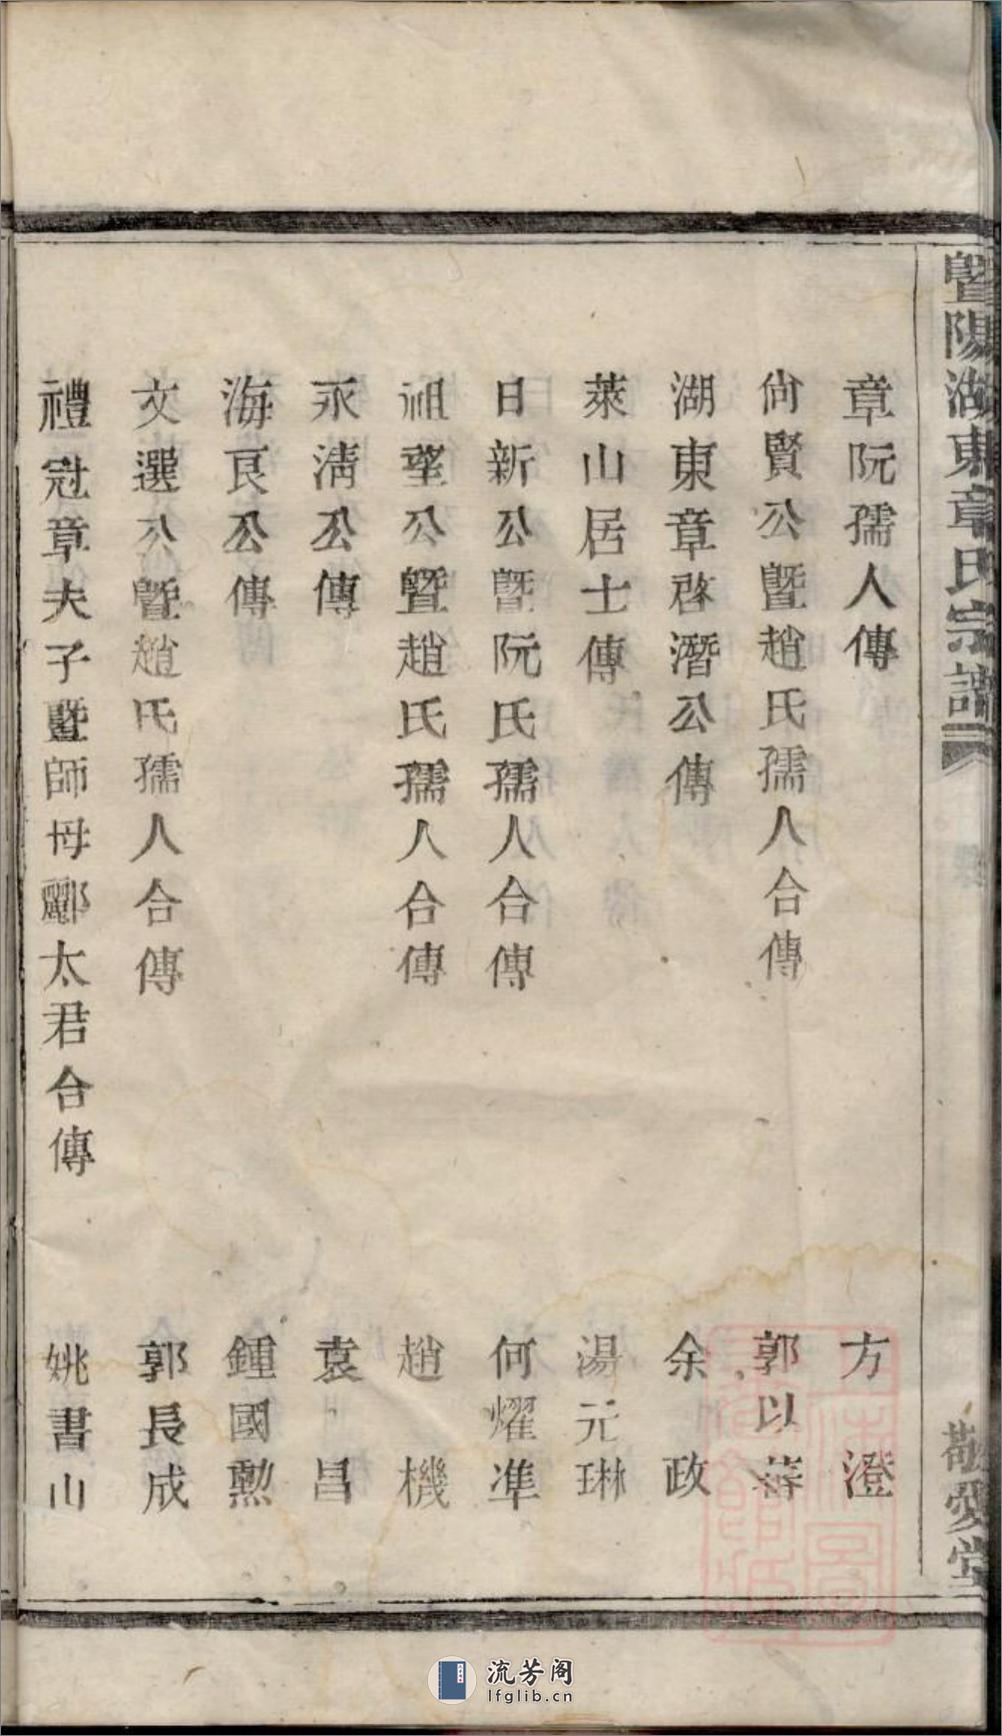 暨陽湖東章氏宗譜
敬愛堂
章阮孺人傳 方澄
尙賢公暨趙氏孺人合傳 郭以蓉
湖東章啓潛公傳 余政
萊山居士傳 湯元琳
日新公暨阮氏孺人合傳 何燿準
祖望公暨趙氏孺人合傳 趙機
永淸公傳 袁昌
海良公傳 鍾國勲
文選公暨趙氏孺人合傳 郭長成
禮冠章夫子暨師母酈太君合傳 姚書山
流芳阁
lfglib.cn